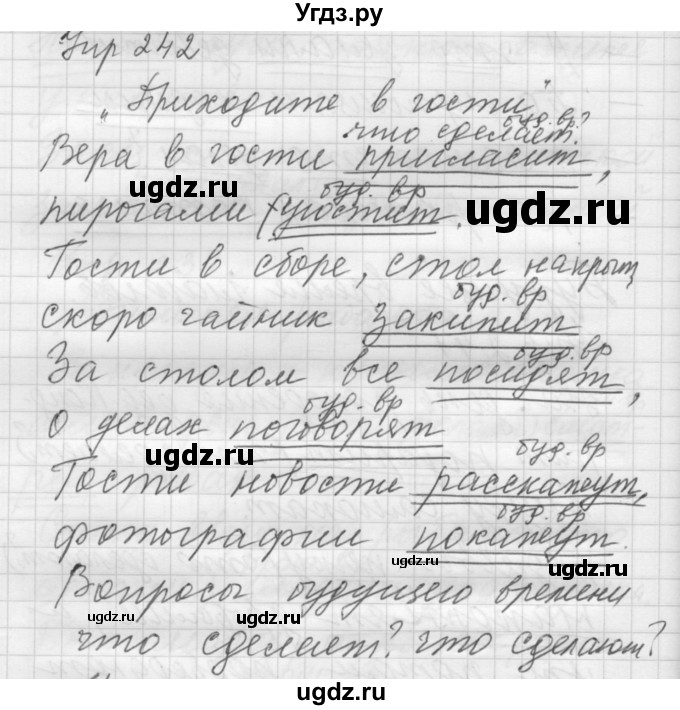 Угдз.ру
Упр 242
"Приходите в гости"
буд. вр
что сделает?
Вера в гости пригласит,
буд. вр
ugdz.ru
пирогами угостит.
ugdz.ru
Гости в сборе, стол накрыт,
буд. вр
скоро чайник закипит
буд. вр
За столом все посидят,
буд. вр
о делах поговорят
ugdz.ru
буд. вр
Гости новости расскажут,
буд. вр
фотографии покажут.
ugdz.ru
Вопросы будущего времени
ugdz.ru
ugdz.ru
что сделает? что сделают?
ugdz.ru